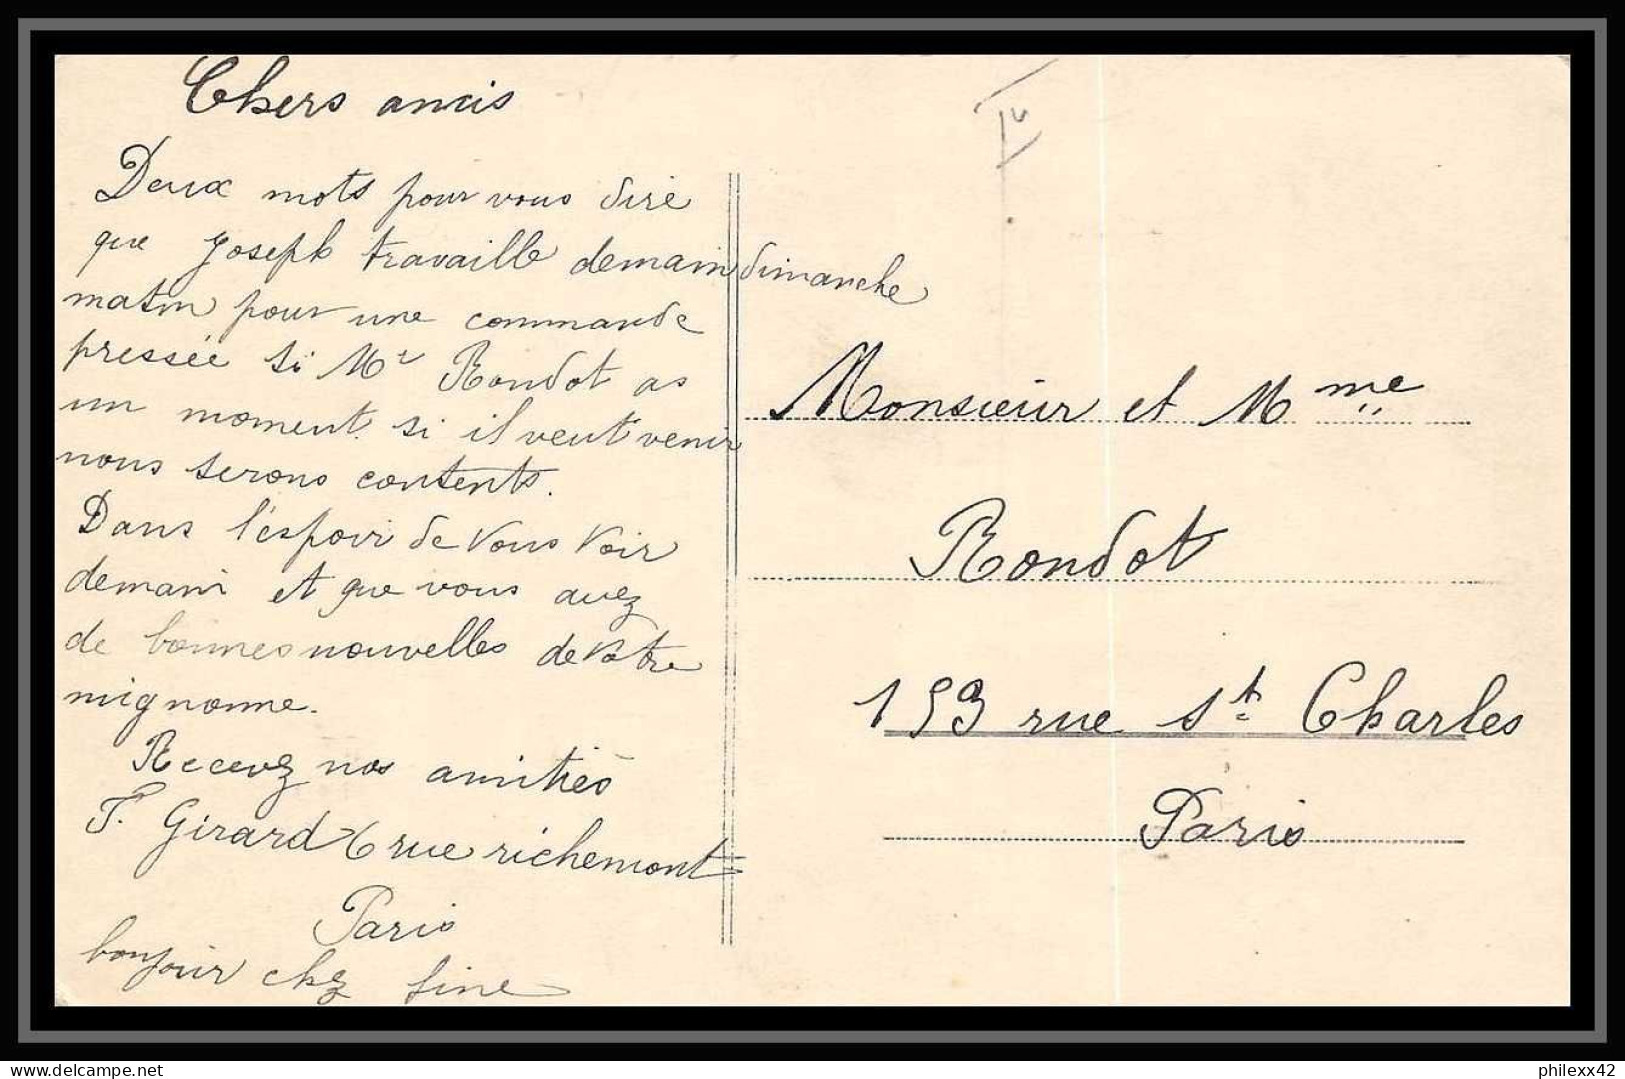 Chers amis
Deux mots pour vous dire
que Joseph travaille demain dimanche
matin pour une commande
pressée si Mr Rondot as
un moment si il veut venir
nous serons contents.
Dans l'espoir de vous voir
demain et que vous avez
de bonnes nouvelles de votre
mignonne.
Recevez nos amitiés
F. Girard 6 rue richemont
Paris
bonjour chez Fine
Monsieur et Mme
Rondot
153 rue St Charles
Paris
delcampe.net
philexx42